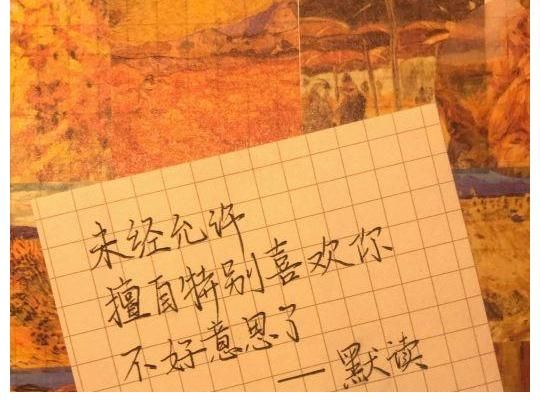 未经允许
擅自特别喜欢你
不好意思了
—默读